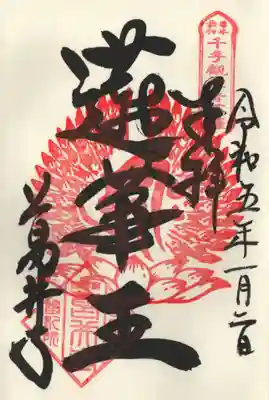 令和五年一月二日
奉拝
千手観
蓮華王
葛井寺